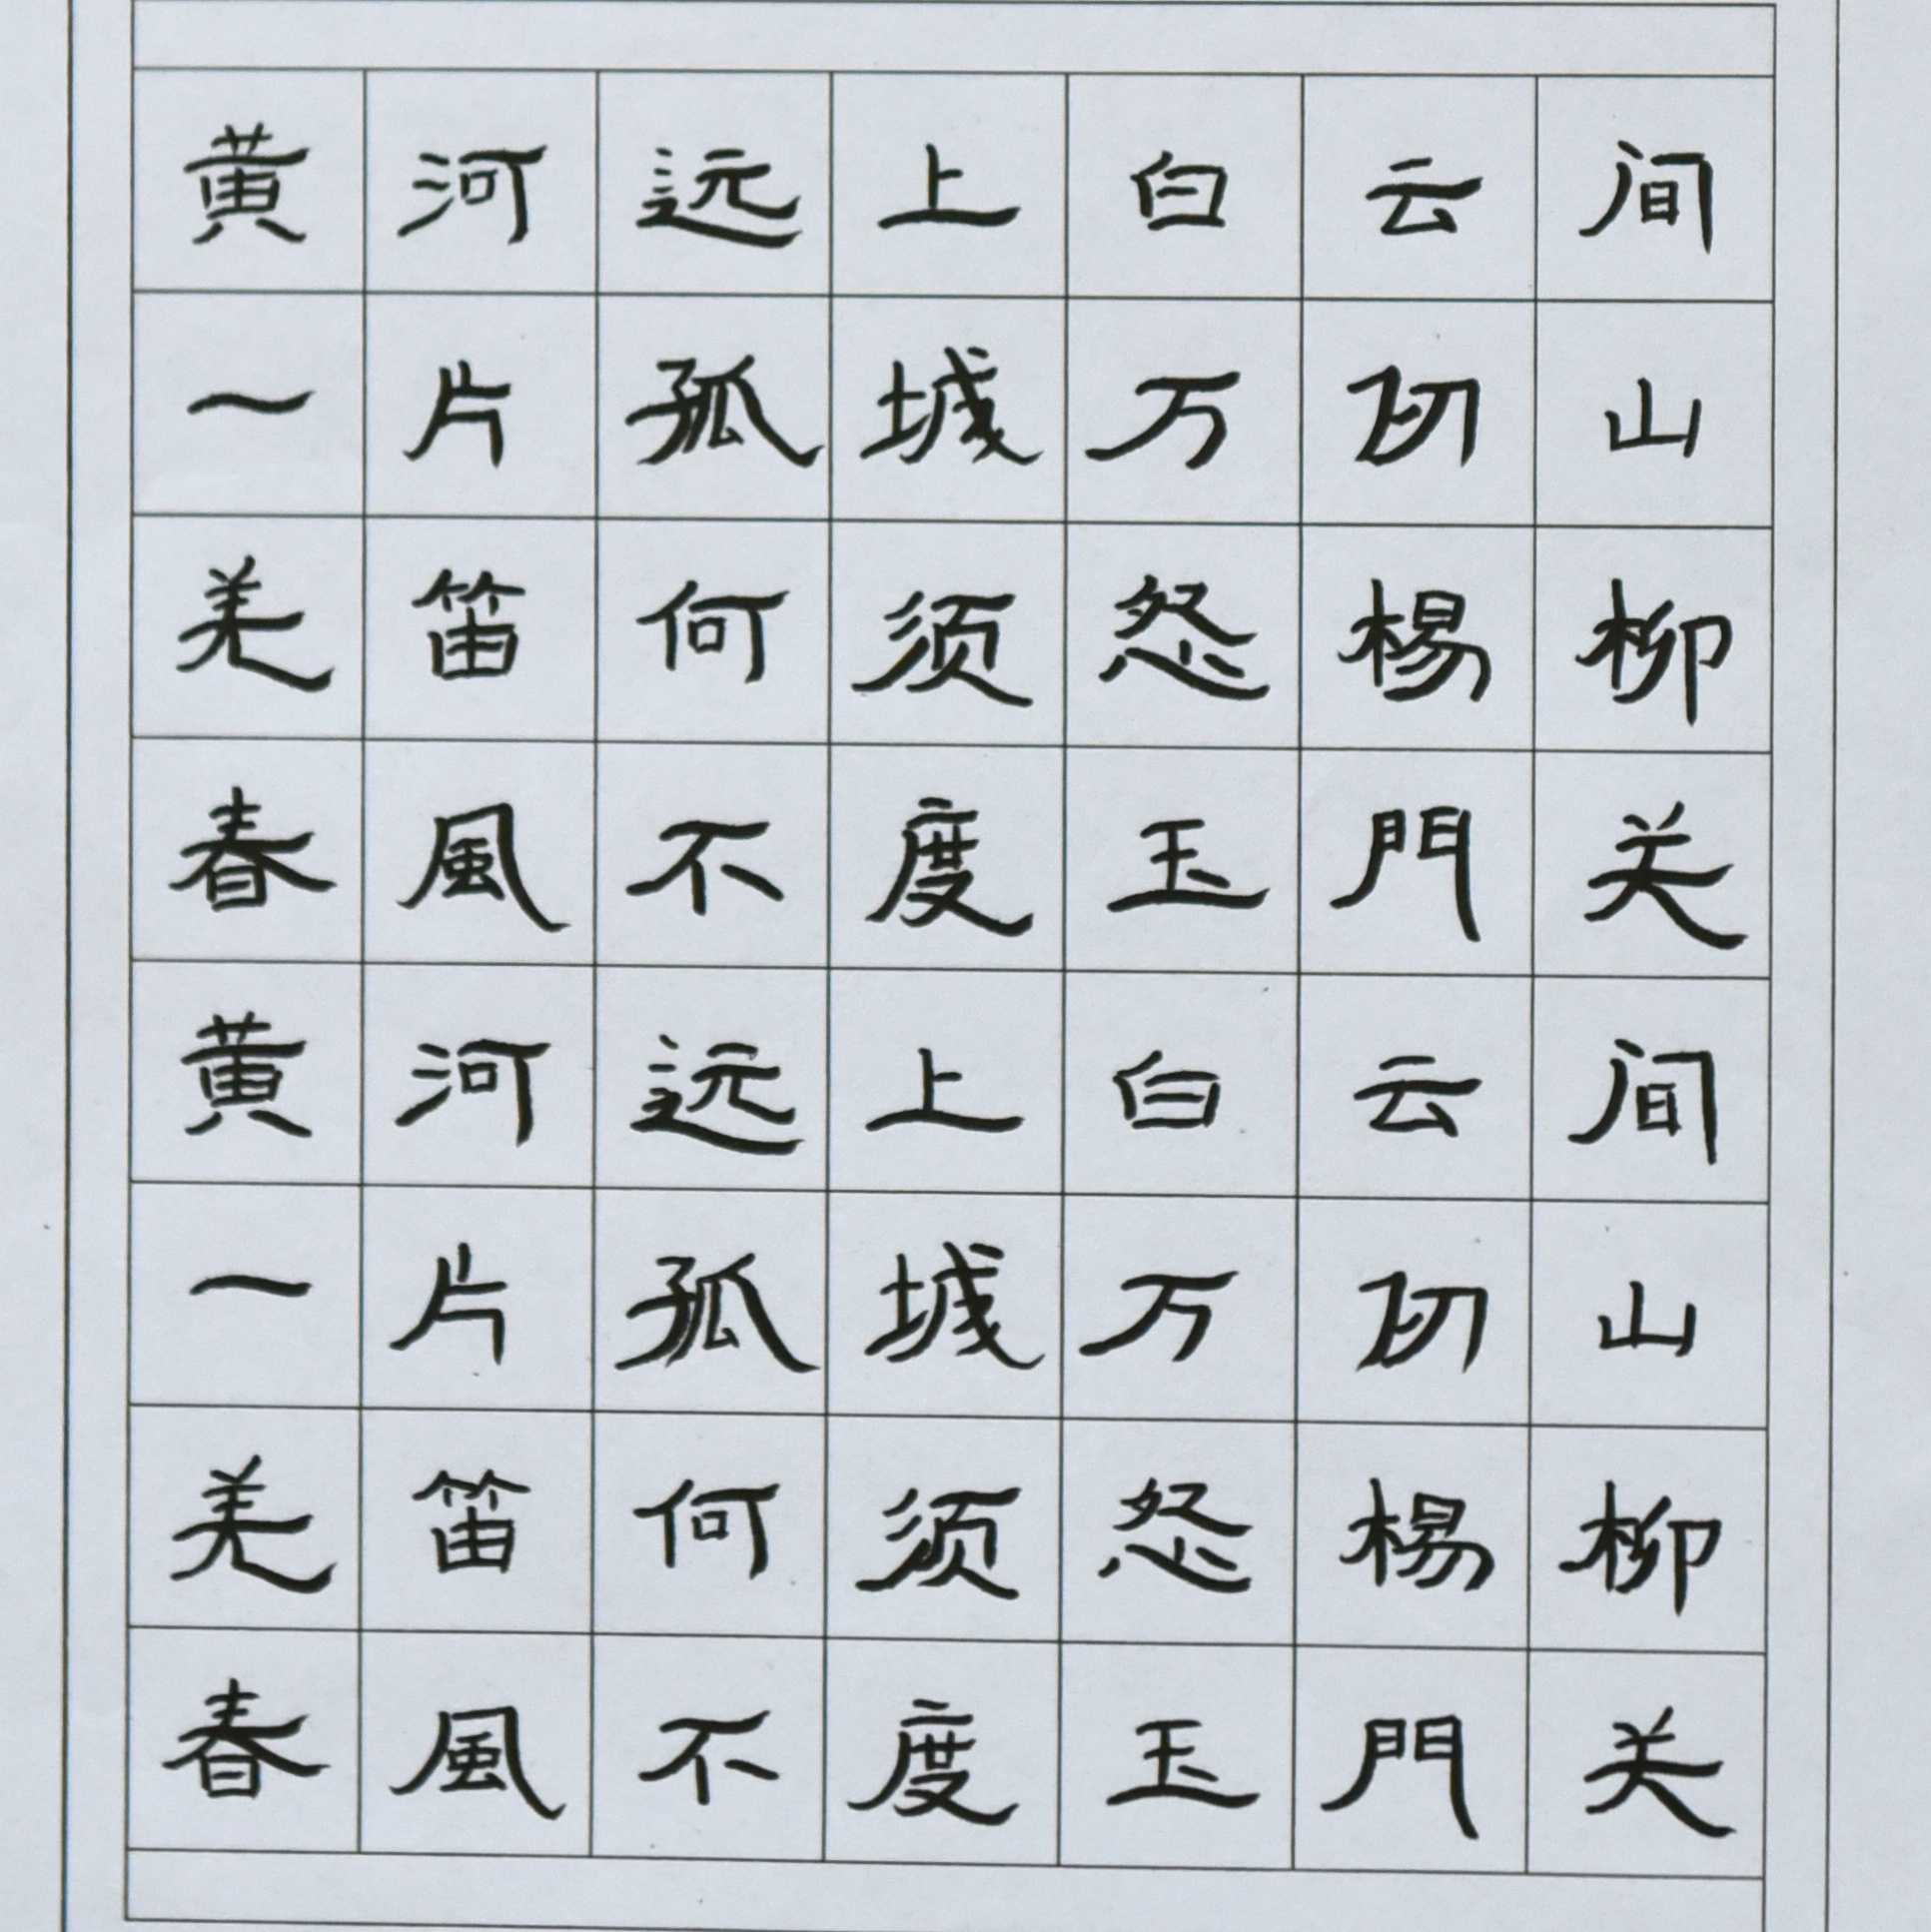 黄河远上白云间
一片孤城万仞山
羌笛何须怨楊柳
春風不度玉門关
黄河远上白云间
一片孤城万仞山
羌笛何须怨楊柳
春風不度玉門关